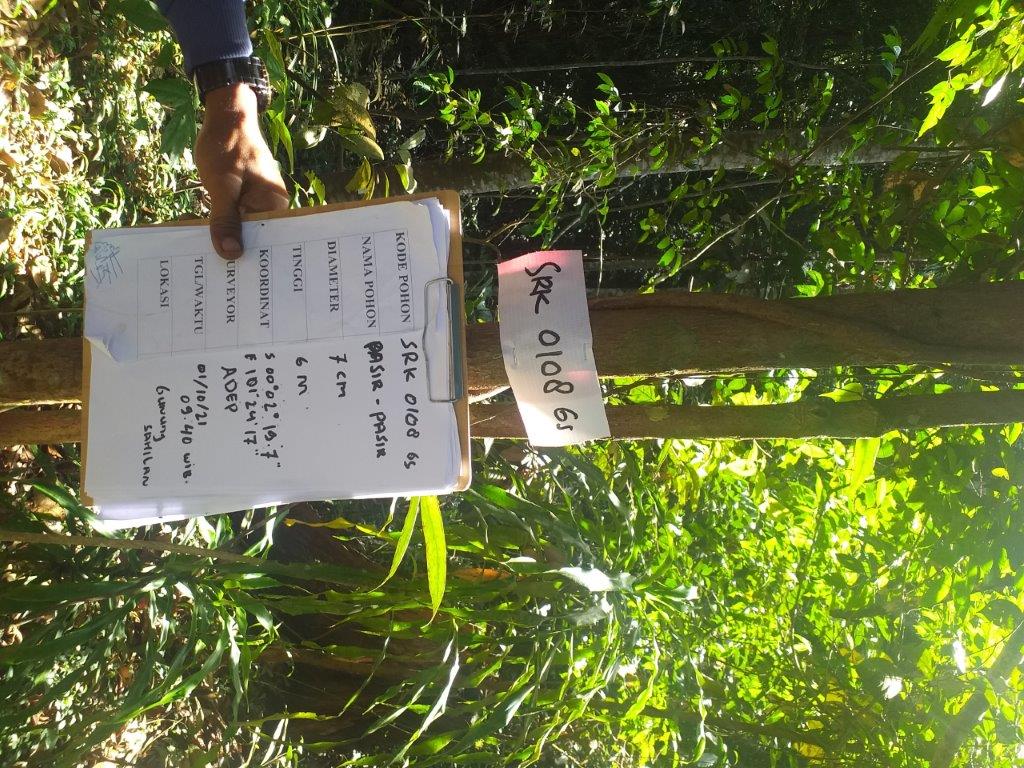 SRK 0108 Gs
KODE POHON SRK 0108 Gs
NAMA POHON PASIR - PASIR
DIAMETER 7 cm
TINGGI 6 M
KOORDINAT S 00°02° 19.7"
E 101°24'17"
URVEYOR ADEP
TGL/WAKTU 01/10/21
09.40 WIB.
LOKASI Gunung
SAHILAN